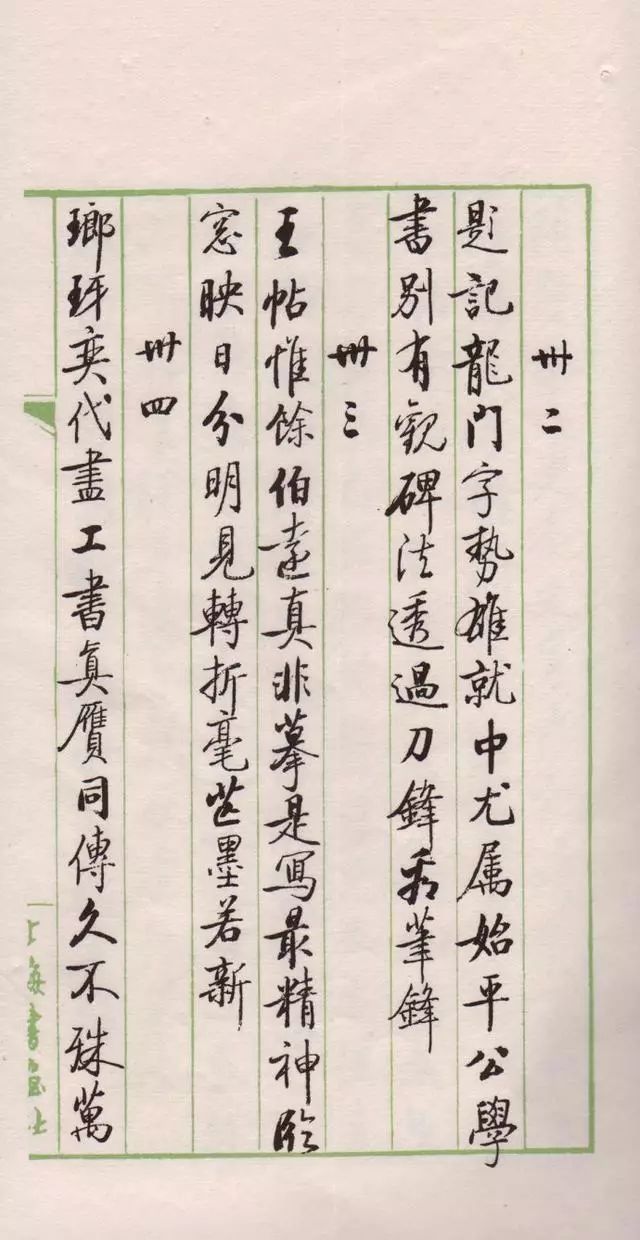 卅二
題記龍門字勢雄就中尤属始平公學
書別有觀碑法透過刀鋒看筆鋒
卅三
王帖惟餘伯遠真非摹是寫最精神臨
窓映日分明見轉折毫芒墨若新
卅四
瑯琊奕代盡工書真贋同傳久不殊萬
上海書畫社